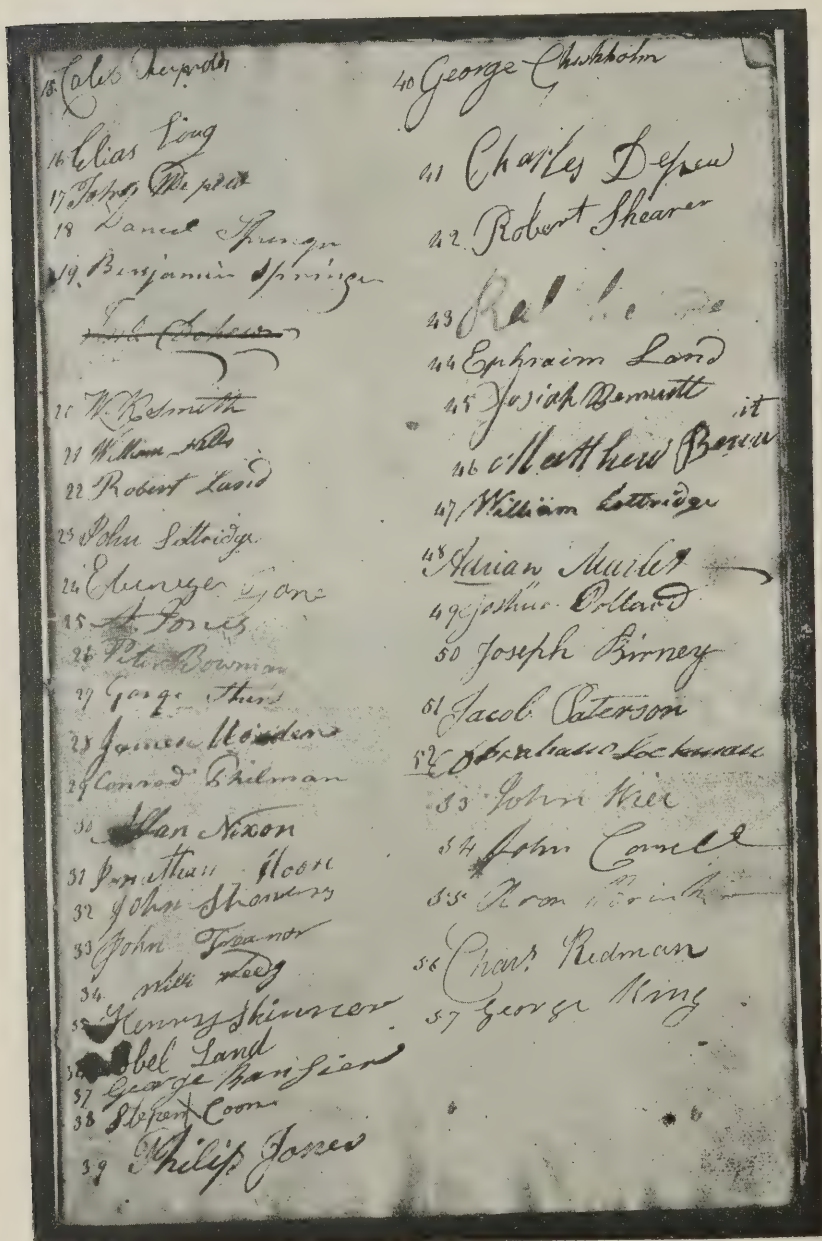 15 Caleb Reynolds
16 Elias Long
17 John Depew
18 Daniel Springer
19. Benjamin Springer
20 W. K. Smith
21 William Hills
22 Robert Land
23 John Lottridge
24 Ebenezer Jone
25 A. Jones
26 Peter Bowman
27 George
28 James
29 Conrad Philman
30 Allan Nixon
31 Jonathan Moore
32 John Showers
33 John Treanor
34 Will
35 Henry Skinner
36 Abel Land
37 George Bansier
38 Stepen Coon
39 Philip Jones
40 George Chishholm
41 Charles Depew
42. Robert Shearer
43
44 Ephraim Land
45 Josiah Bennett
46 Matthew
47 William Lottridge
48 Adrian Marlet
49 Joshua Dollard
50 Joseph Birney
51 Jacob Paterson
52 Abraham Lockman
53 John Wier
54 John Cornell
55
56 Chas. Redman
57 George King